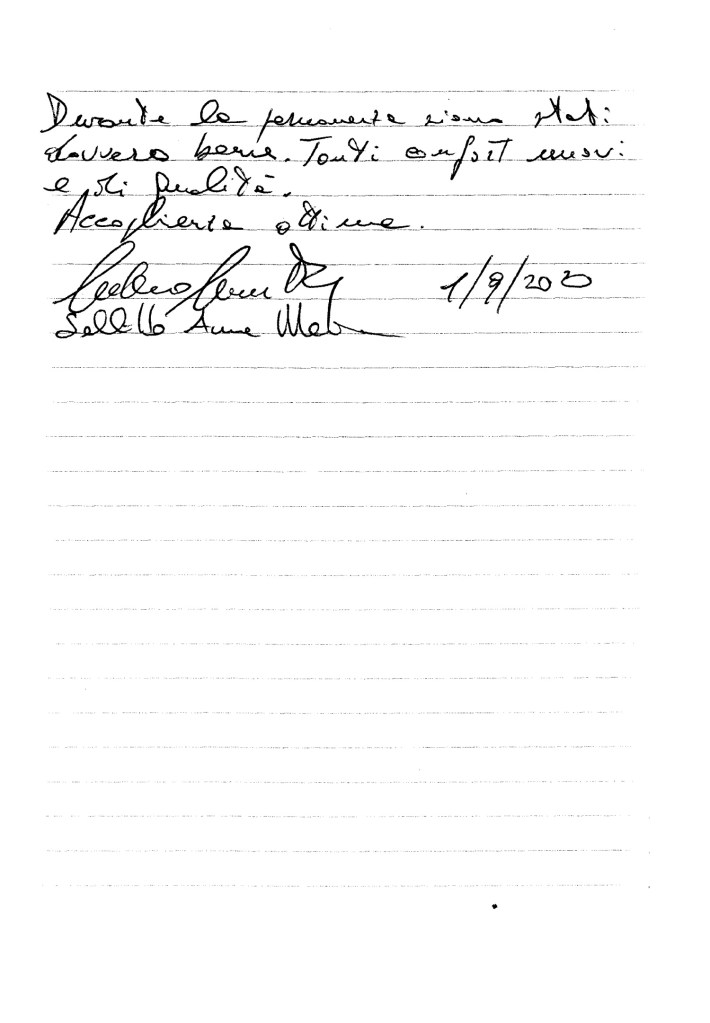 Durante la permanenza siamo stati
davvero bene. Tanti confort nuovi
e di qualità.
Accoglienza ottima.
1/9/2020
Anna